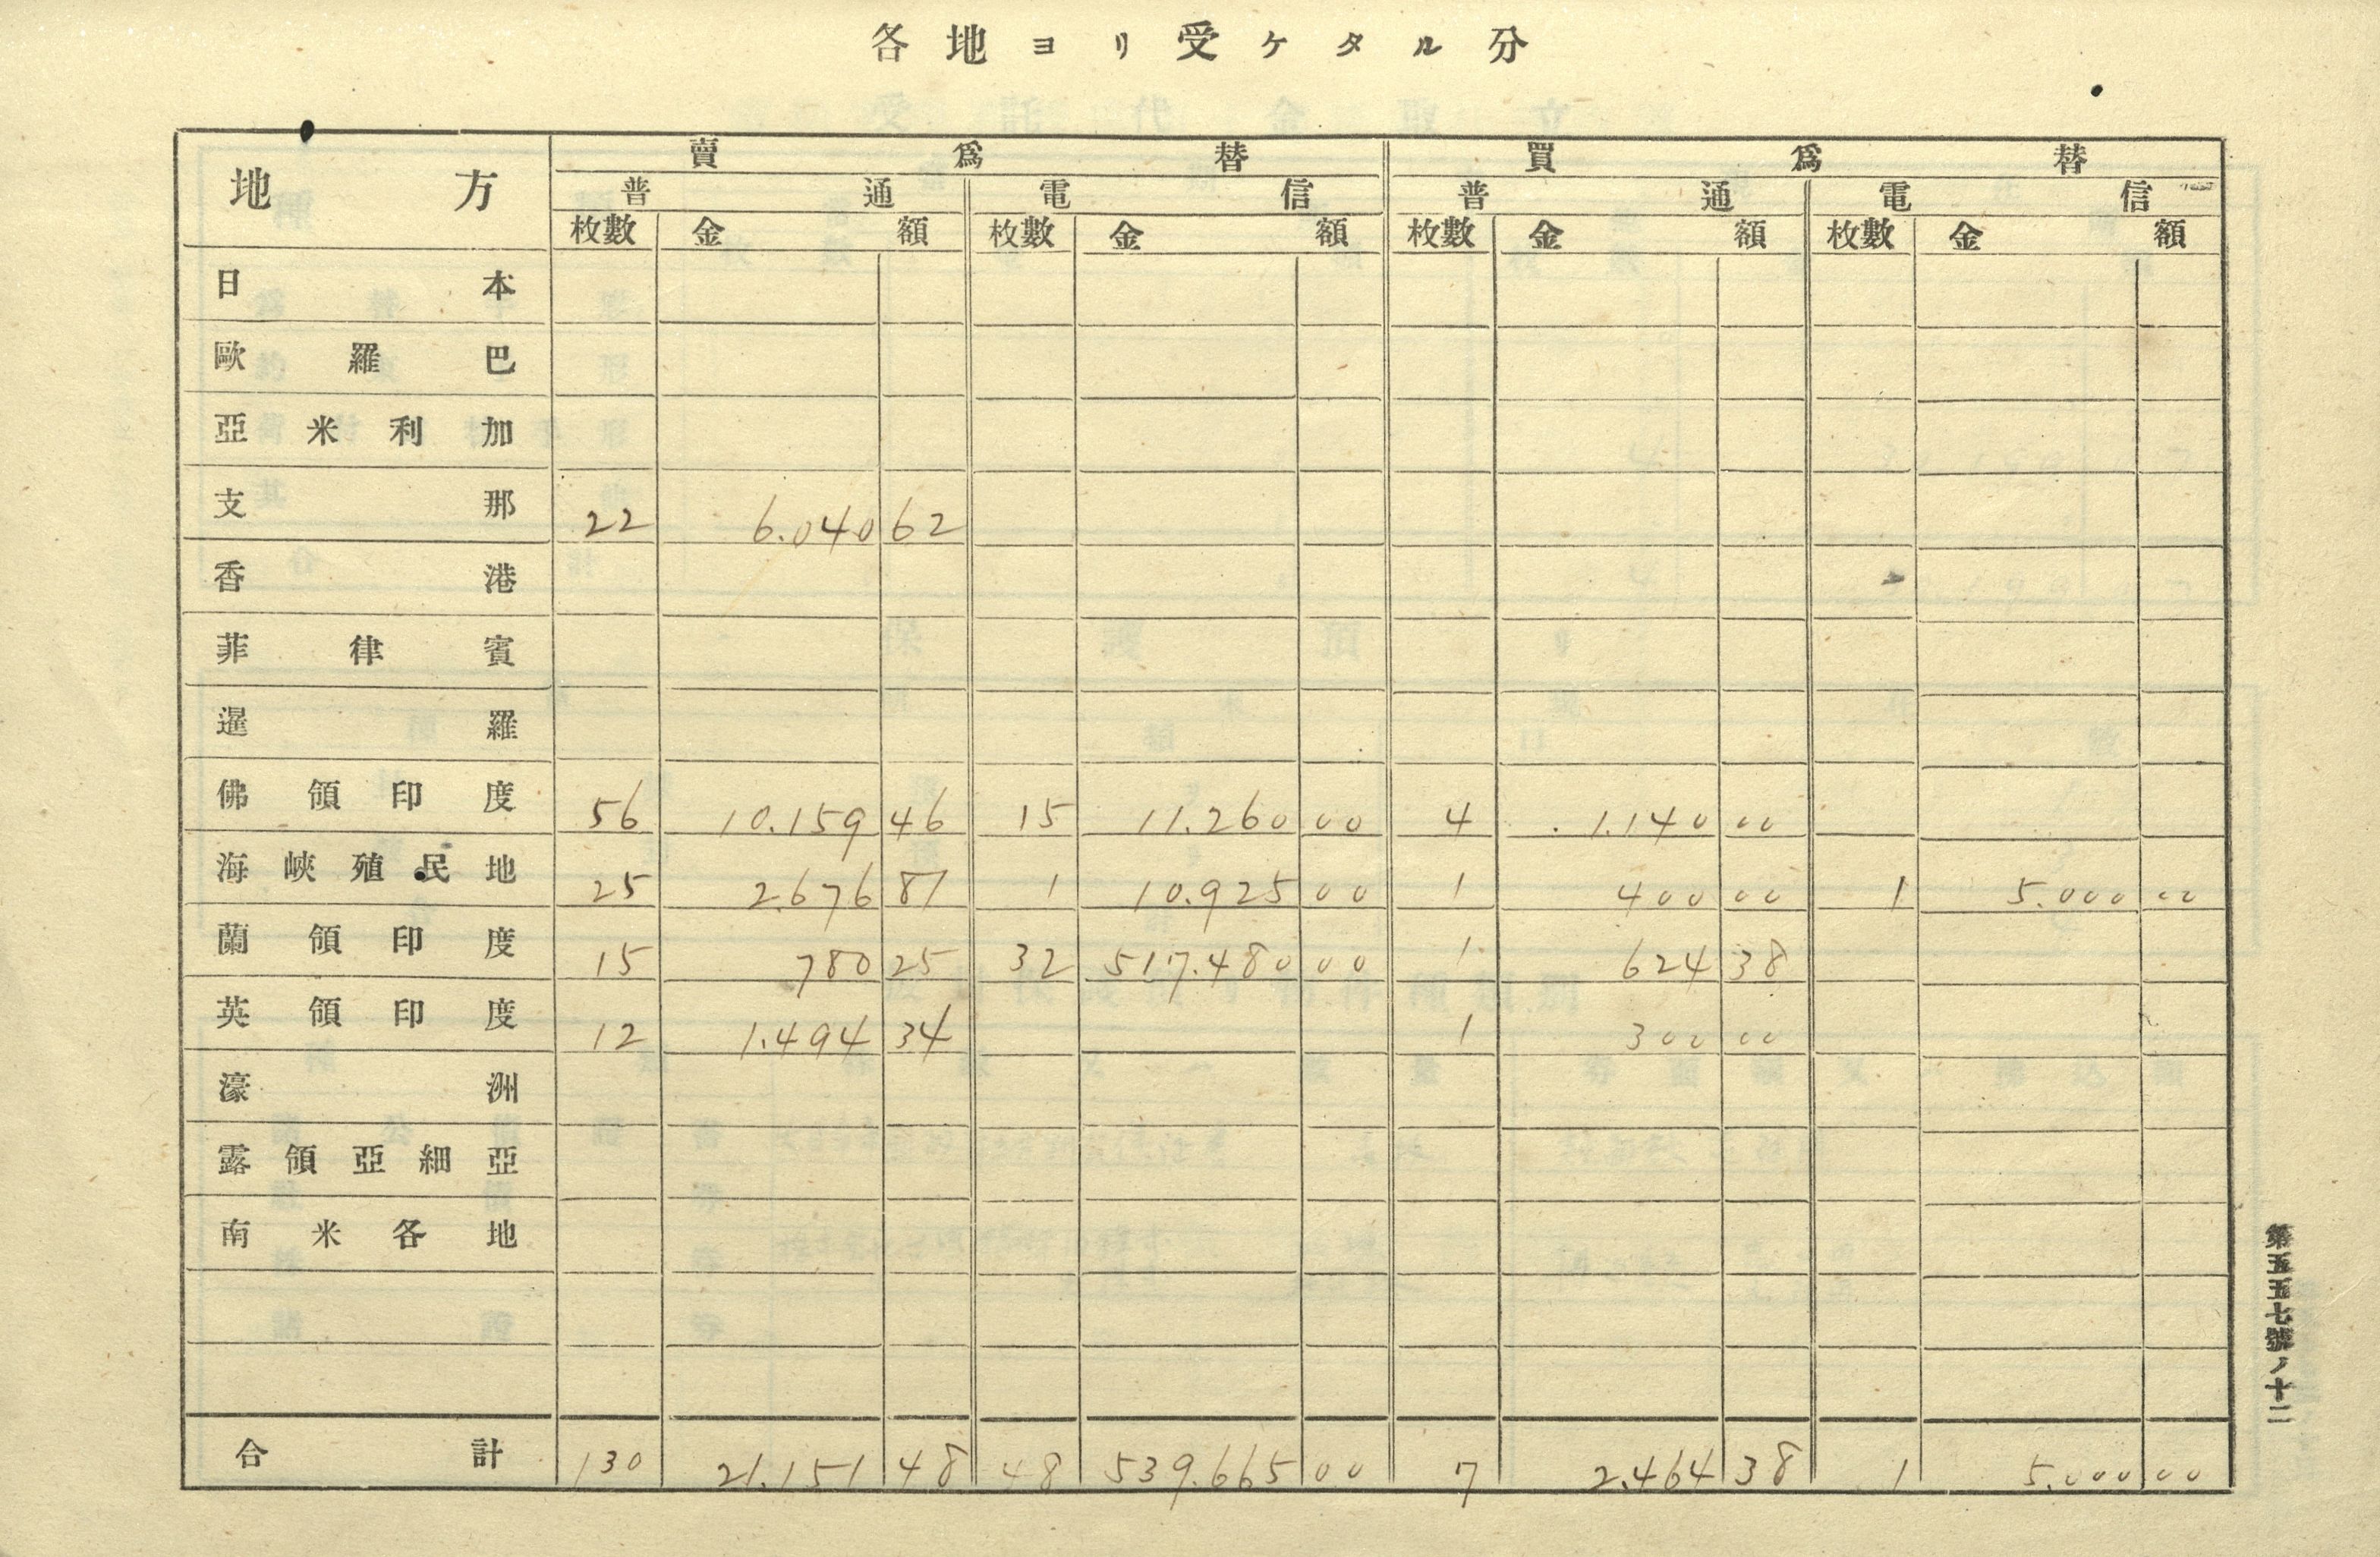 各地ヨリ受ケタル分
地方 賣爲替 買爲替
普通 電信 普通 電信
枚數 金額 枚數 金額 枚數 金額 枚數 金額
日本
歐羅巴
亞米利加
支那 22 6.040 62
香港
菲律賓
暹羅
佛領印度 56 10.159 46 15 11.260 00 4 1.140 00
海峽殖民地 25 2.676 81 1 10.925 00 1 400 00 1 5.000 00
蘭領印度 15 780 25 32 517.480 00 1 624 38
英領印度 12 1.494 34 1 300 00
濠洲
露領亞細亞
南米各地
合計 130 21.151 48 48 539.665 00 7 2.464 38 1 5.000 00
第五五七號ノ十二